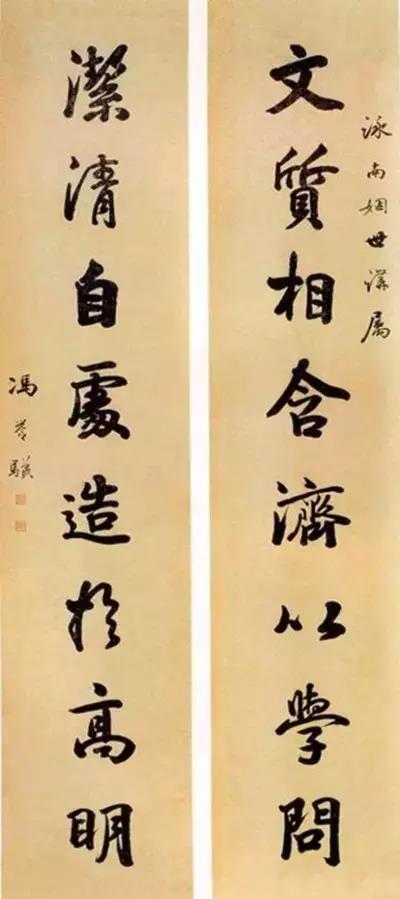 泳南姻世講属
文質相含濟以學問
潔清自處造於高明
馮譽驥